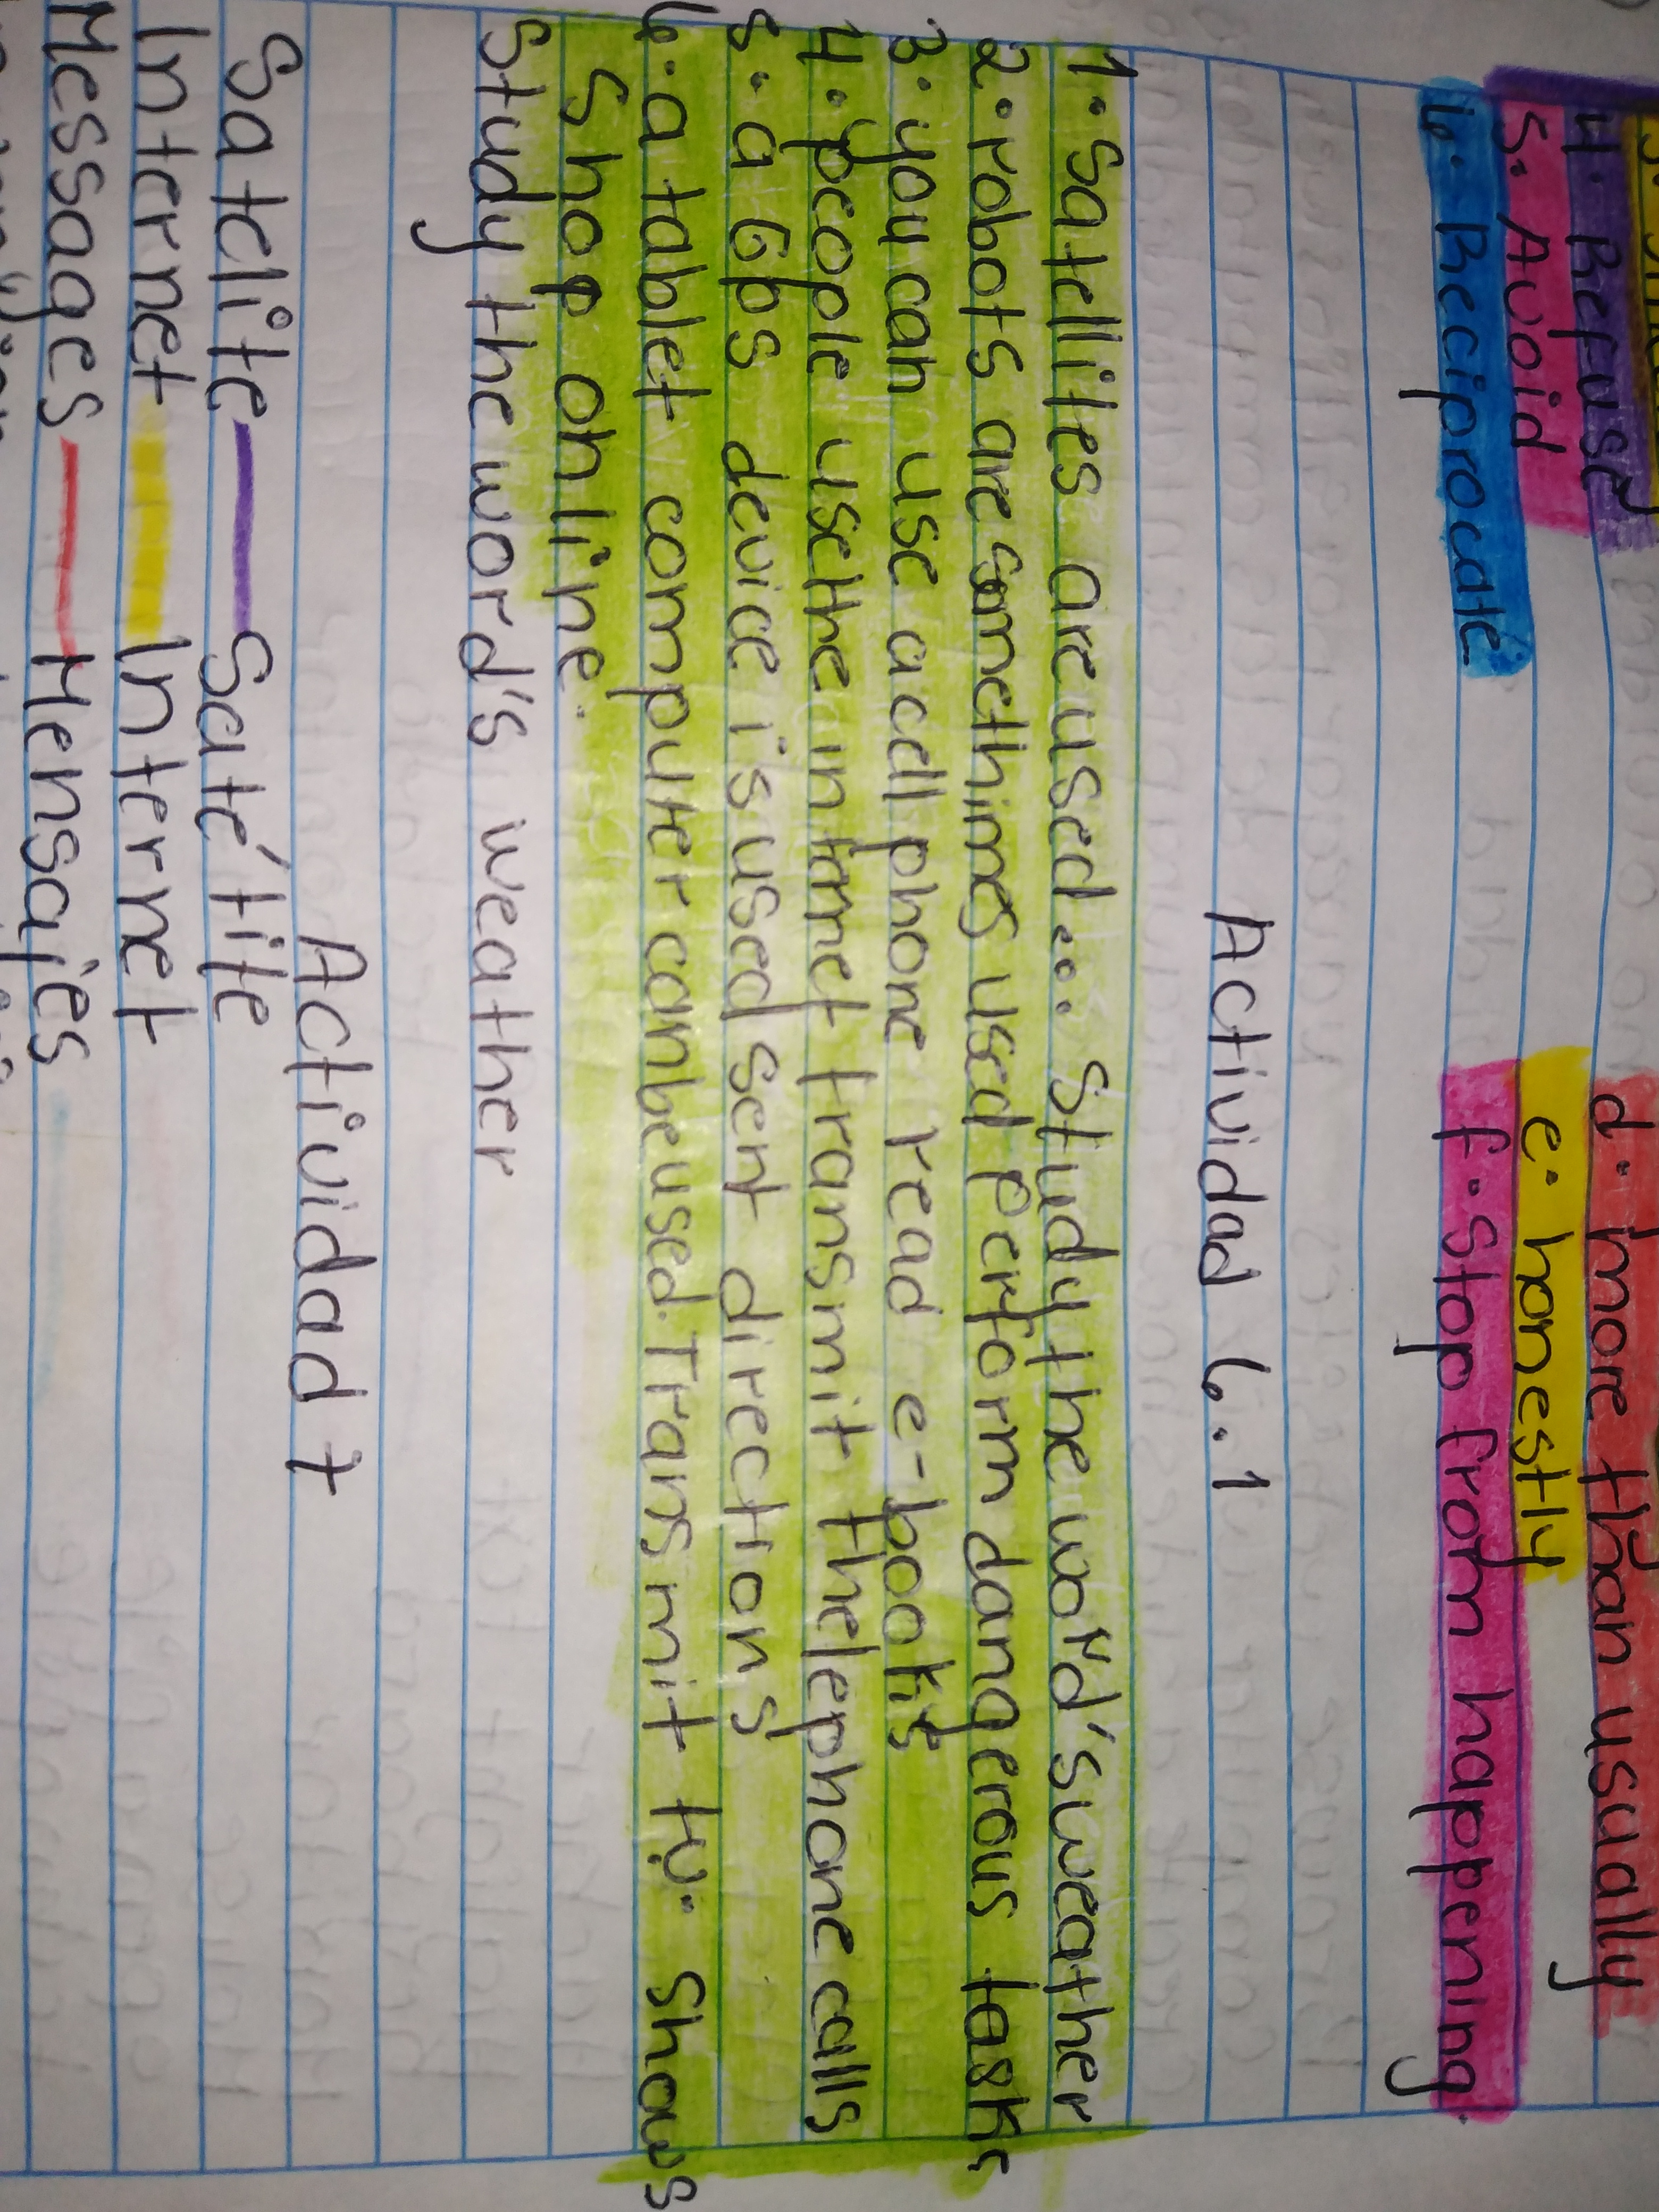 4. Refuse
d. more than usually
5. Avoid
e. honestly
6. Reciprocate
f. stop from happening.
Actividad 6.1
1. Satellites are used... Study the world's weather
2. robots are somethimes used perform dangerous tasks
3. you can use a cell phone read e-books
4. people use the internet transmit thelephone calls
5. a Gps device is used sent directions
6. a tablet computer can be used. Transmit tv. Shows
Shop online.
Study the word's weather
Actividad 7
Satelite — Saté'tite
Internet — Internet
Messages — Mensajes